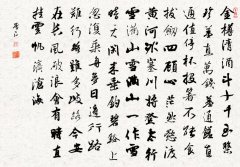 金樽清酒斗十千
珍羞直萬錢
停杯投箸不
拔劍四顧心茫然欲渡
黃河冰塞川將登太行
雪滿山
閑來垂釣碧溪上
忽復乘舟夢日邊行路
難行路難多歧路今安
在長風破浪會有時直
掛雲帆濟滄海